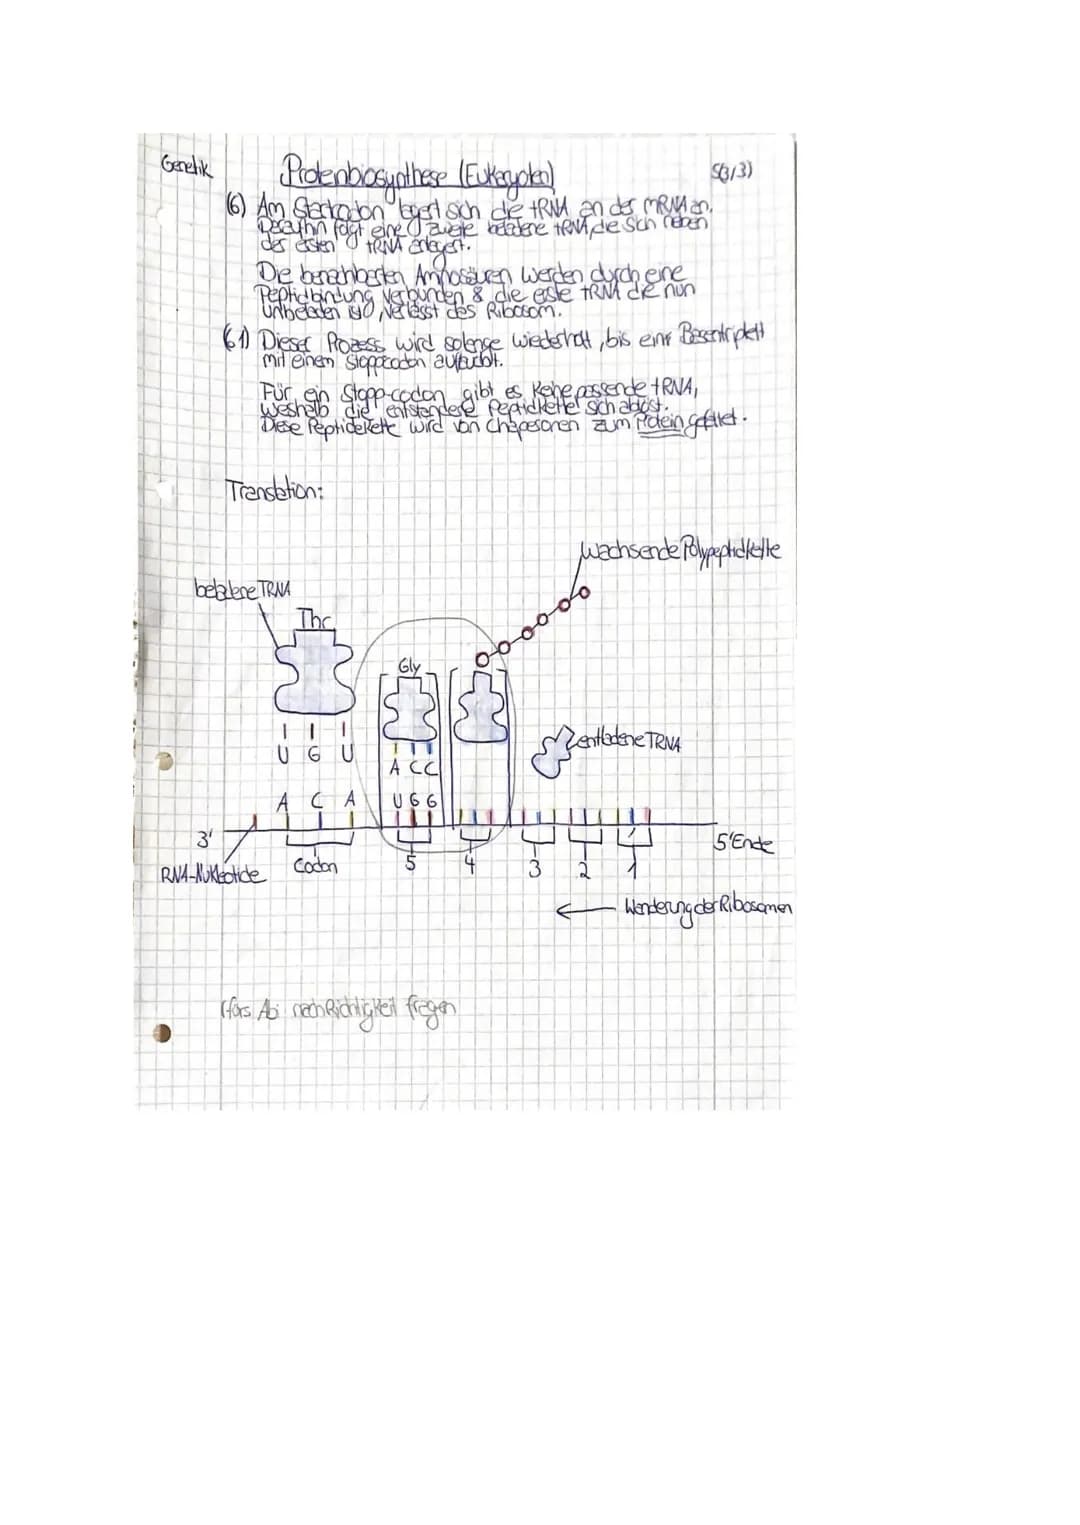 Genetik
Proteinbiosynthese (Eukaryoten)
S(3/3)
(6) Am Startcodon lagert sich die tRNA an der mRNA an.
Daraufhin folgt eine zweite beladene tRNA, die sich neben
der ersten tRNA anlagert.
Die benachbarten Aminosäuren werden durch eine
Peptidbindung verbunden & die erste tRNA die nun
unbeladen ist, verlässt das Ribosom.
(6.1) Dieser Prozess wird solange wiederholt, bis eine Basentriplett
mit einem Stoppcodon auftaucht.
Für ein Stopp-codon gibt es keine passende tRNA,
weshalb die entstandene Peptidkette sich ablöst.
Diese Peptidekette wird von Chaperonen zum Protein gefaltet.
Translation:
wachsende Polypeptidkette
beladene TRNA
Thr
Gly
entladene TRNA
U G U
A CC
A C A
U G G
3'
5'Ende
RNA-Nukleotide
Codon
5
4
3
2
1
← Wanderung der Ribosomen
(fürs Abi nach Richtigkeit fragen